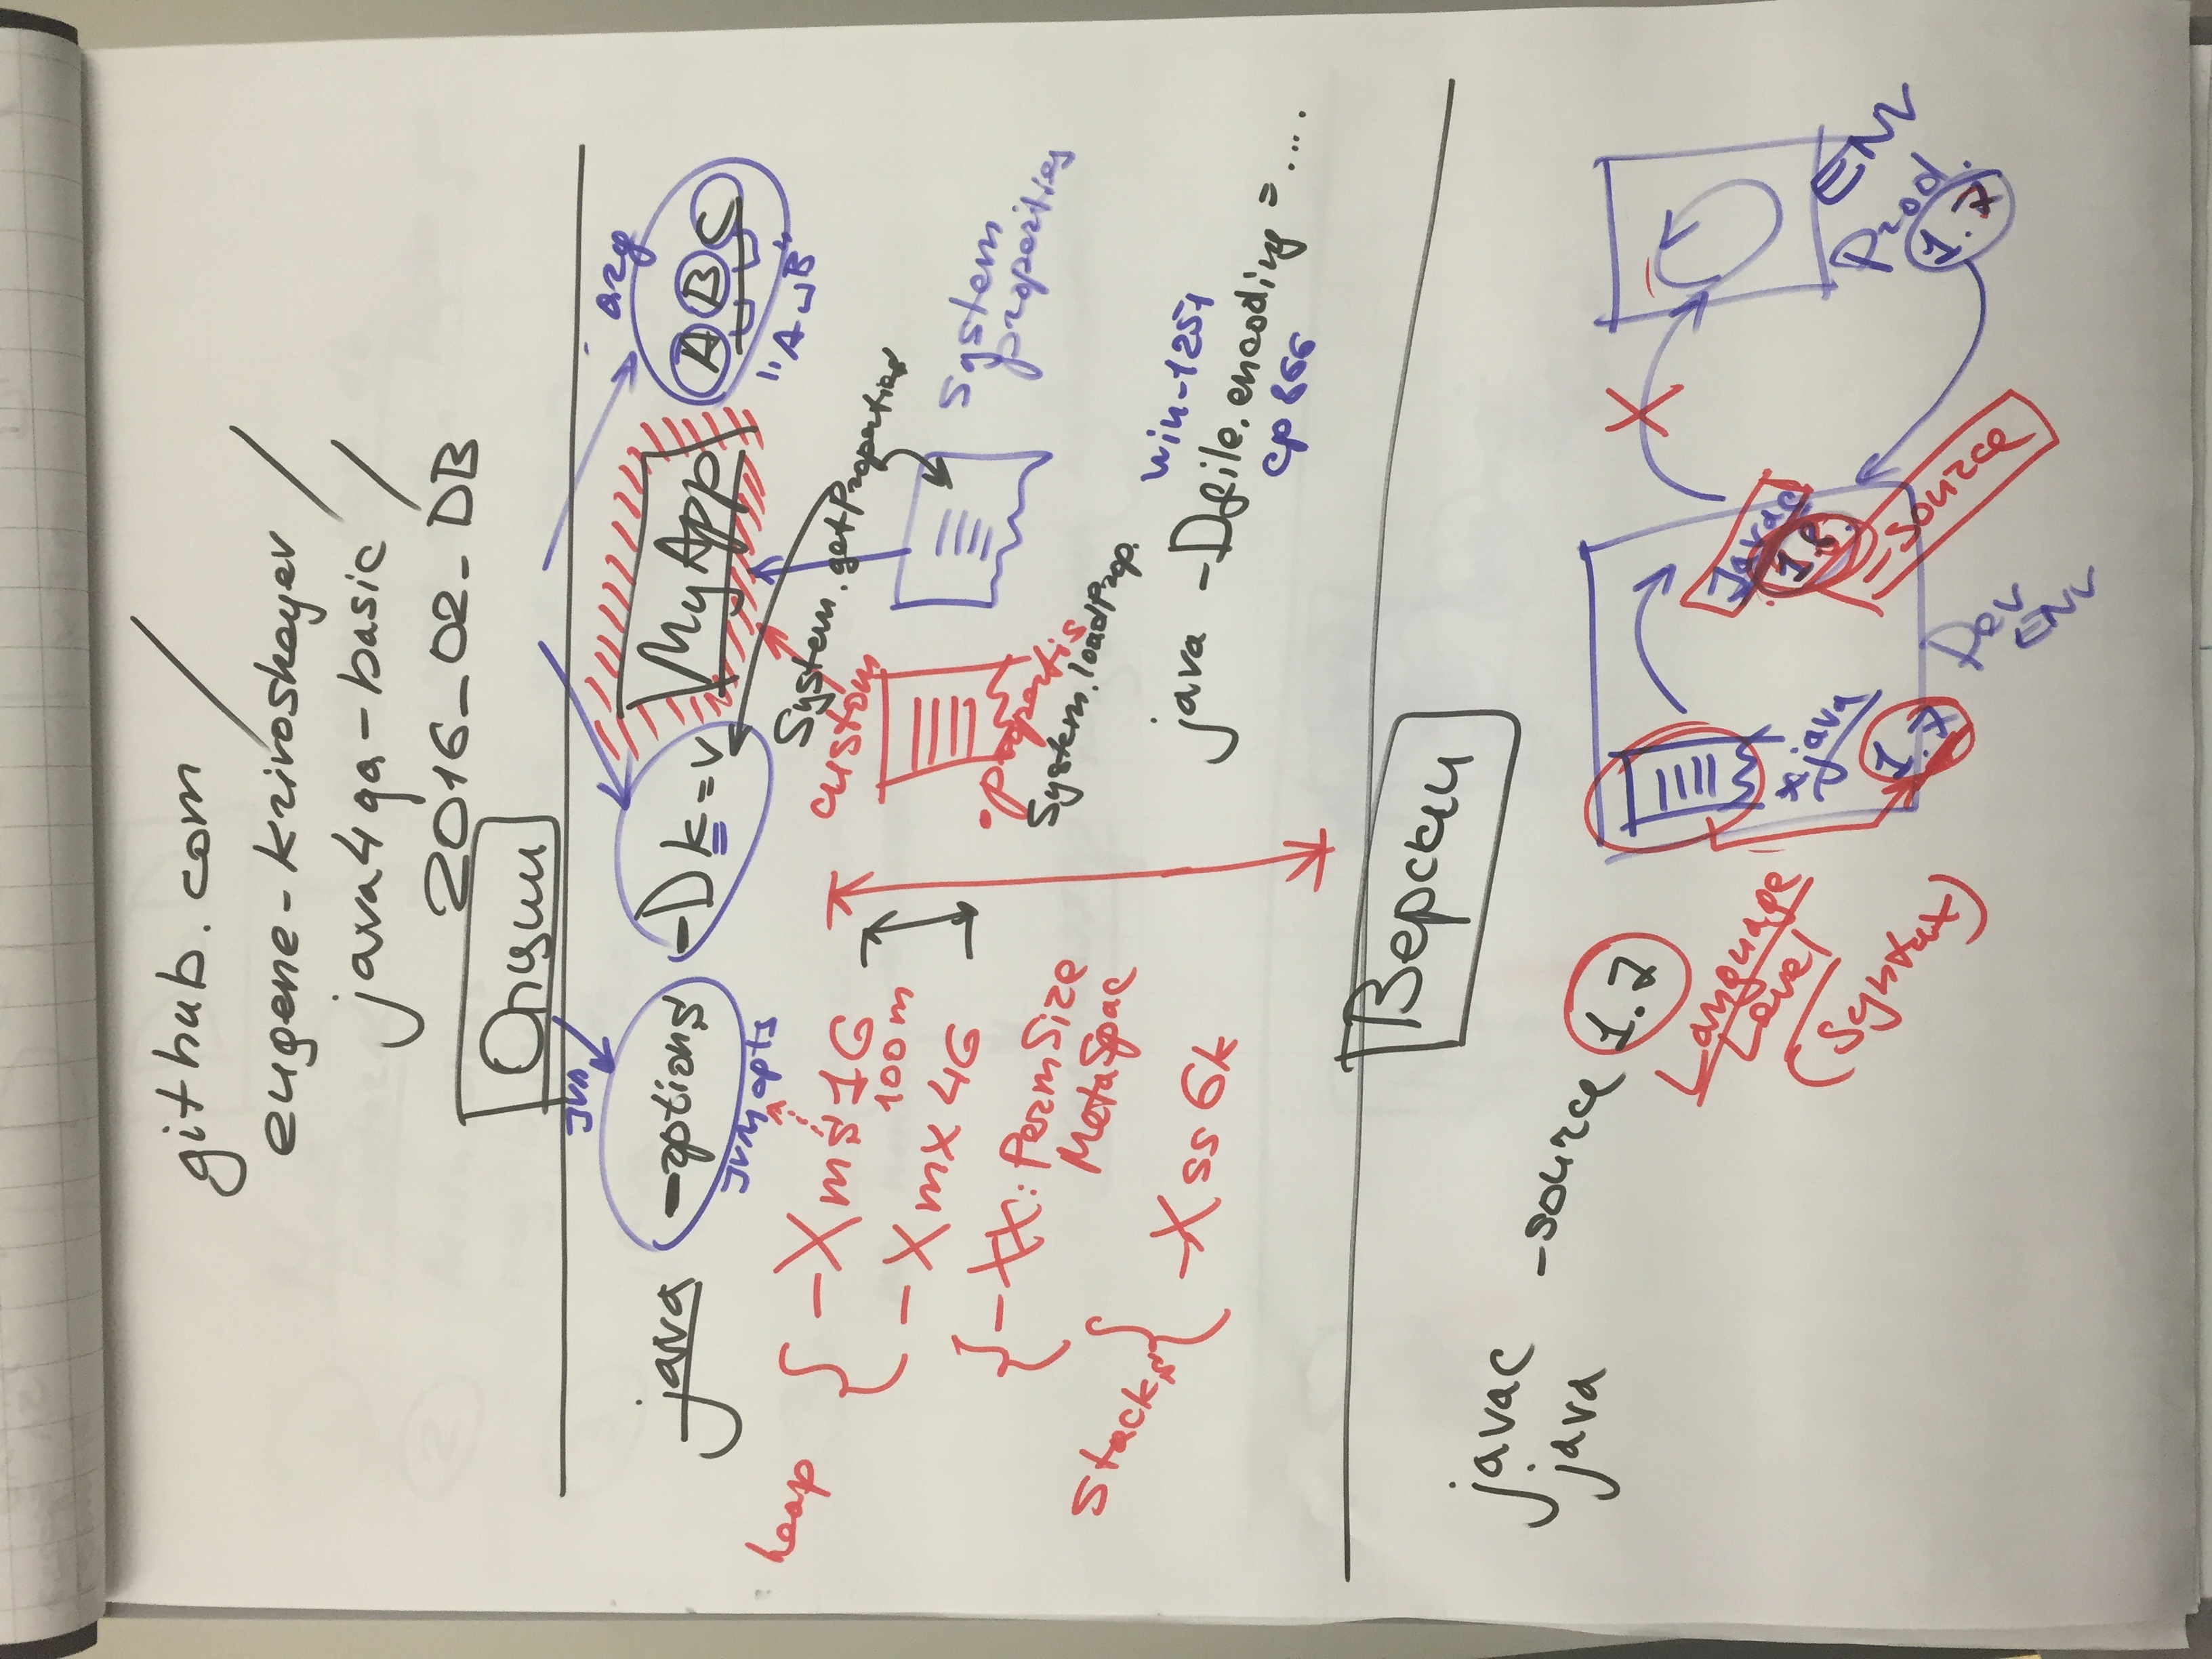 github.com /
eugene-krivosheyev /
java4qa-basic /
2016_02_DB
Опции
JVM
arg
java -options -Dk=v MyApp A B C
JVM opts
"A␣B"
heap
-Xms 1G
100m
-Xmx 4G
-XX: PermSize
MetaSpac
Stacks
-Xss 6k
System.getProperties
custom
.propertis
System.loadProp.
System
properties
win-1251
java -Dfile.encoding = ....
cp866
Версии
javac
java
-source 1.7
Language
Level
(Syntax)
*.java
1.7
Javac
1.8
source
Dev
ENV
Prod.
ENV
1.7